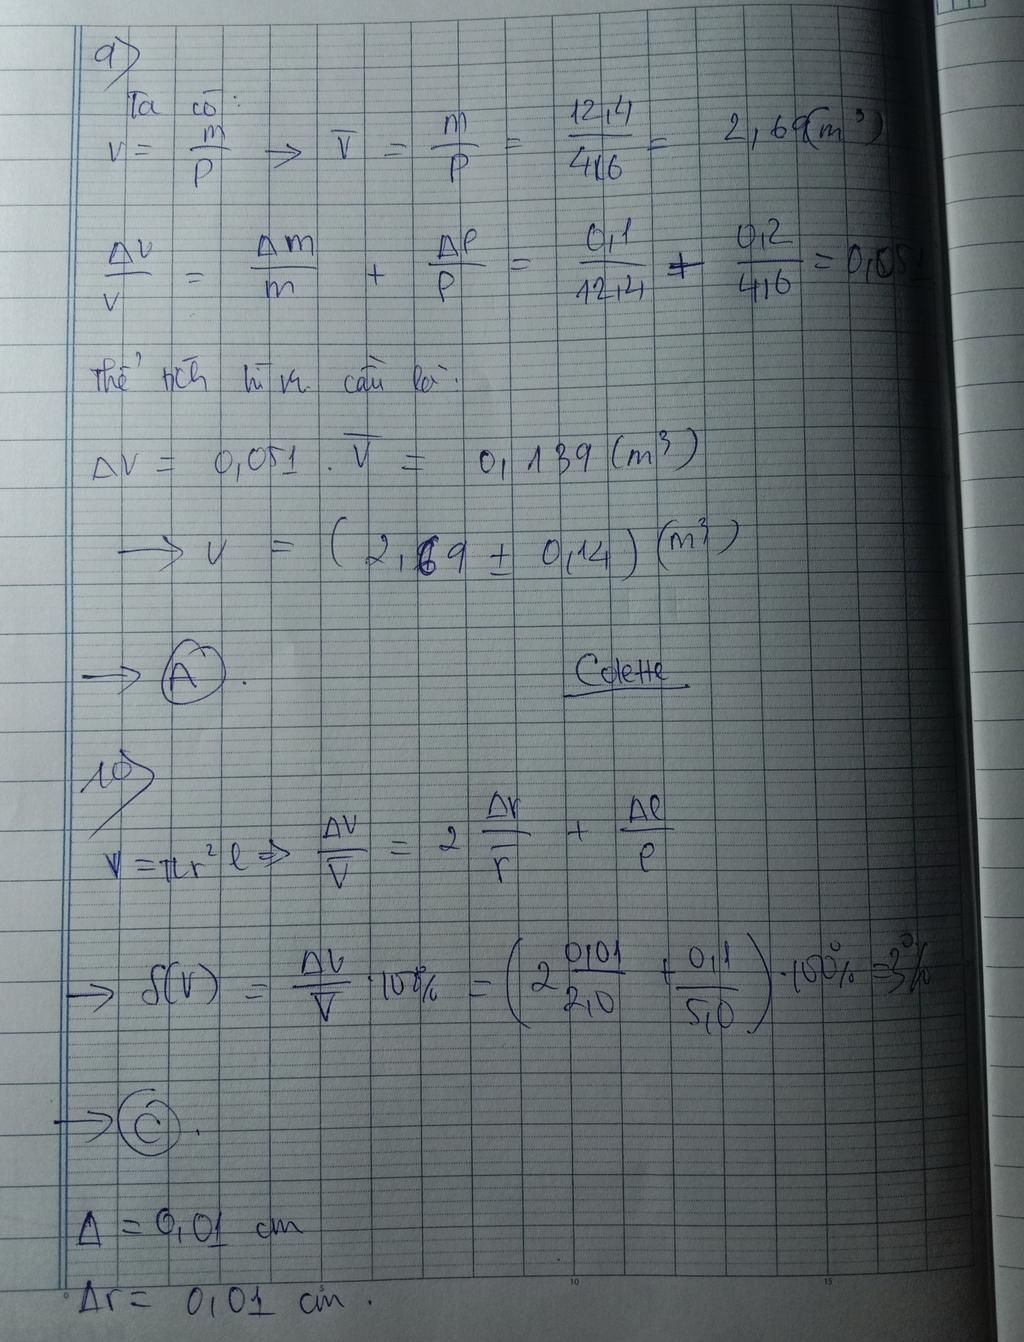 9)
Ta có:
V = m/ρ → V̅ = m/ρ = 12,4/4,6 = 2,69 (m³)
ΔV/V = Δm/m + Δρ/ρ = 0,1/12,4 + 0,2/4,6 = 0,051
Thể tích hình cầu là:
ΔV = 0,051 . V̅ = 0,139 (m³)
→ V = (2,69 ± 0,14) (m³)
→ A.
Colette
10)
V = πr²l => ΔV/V̅ = 2 Δr/r̅ + Δl/l
→ δ(V) = ΔV/V̅ . 100% = (2 0,01/2,0 + 0,1/5,0) . 100% = 3%
→ C.
Δ = 0,01 cm
Δr = 0,01 cm.
0 5 10 15